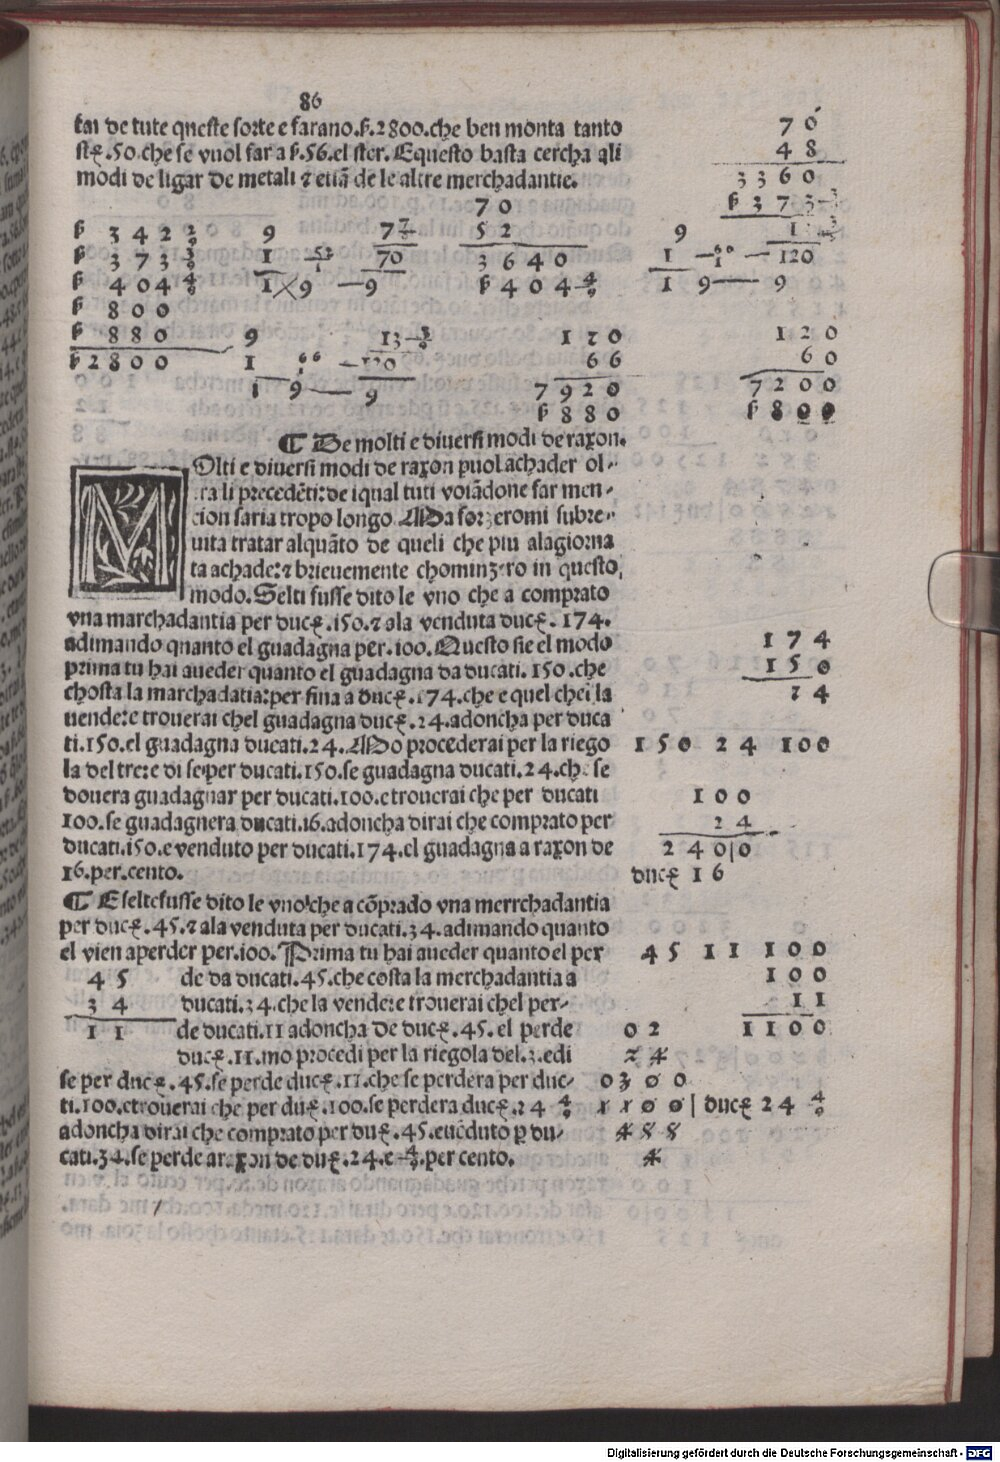 86
tai de tute queste sorte e farano.ꝑ.2800.che ben monta tanto
ste.50.che se vuol far a ꝑ.56.el ster. E questo basta cercha ali
modi de ligar de metali ⁊ etiā de le altre merchadantie.
7 0
4 8
3 3 6 0
ꝑ 3 7 3
7 0
5 2
3 6 4 0
ꝑ 4 0 4
ꝑ 3 4 2
ꝑ 3 7 3
ꝑ 4 0 4
ꝑ 8 0 0
ꝑ 8 8 0
ꝑ 2 8 0 0
9
1 52/1 70
1 9 — 9
9
1 — 60/1 — 120
1 9 — 9
9 13
1 66
1 9 — 9
1 2 0
6 6
7 9 2 0
ꝑ 8 8 0
1 2 0
6 0
7 2 0 0
ꝑ 8 0 0
¶ De molti e diuersi modi de raxon.
MOlti e diuersi modi de raxon puol achader ol-
tra li precedēti: de iqual tuti voiādone far men-
cion saria tropo longo. Ma sforzeromi sub breue
uita tratar alquāto de queli che piu ala giorna
ta achade: ⁊ brieuemente chominzero in questo
modo. Se lti fusse dito le vno che a comprato
vna marchadantia per duc.150.⁊ ala venduta duc. 174.
adimando quanto el guadagna per.100. Questo sie el modo
prima tu hai aueder quanto el guadagna da ducati.150.che
chosta la marchadatia: per fina a duc.174.che e quel chei la
uende: e trouerai chel guadagna duc.24.adoncha per duca
ti.150.el guadagna ducati.24. Mo procederai per la riego
la del tre: e di se per ducati.150.se guadagna ducati.24.che se
douera guadagnar per ducati.100.e trouerai che per ducati
100.se guadagnera ducati.16.adoncha dirai che comprato per
ducati.150.e venduto per ducati.174.el guadagna a raxon de
16.per.cento.
1 7 4
1 5 0
2 4
1 5 0 2 4 1 0 0
1 0 0
2 4
2 4 0|0
duc 1 6
¶ E selte fusse dito le vno che a cōprado vna merrchadantia
per duc.45.⁊ ala venduta per ducati.34.adimando quanto
el vien aperder per.100. Prima tu hai aueder quanto el per
de da ducati.45.che costa la merchadantia a
ducati.34.che la vende: e trouerai chel per-
de ducati.11 adoncha de duc.45. el perde
duc.11.mo procedi per la riegola del.3.e di
se per duc.45.se perde duc.11.che se perdera per duc-
ti.100.e trouerai che per duc.100.se perdera duc.24 4/9
adoncha dirai che comprato per duc.45.e uēduto p du-
cati.34.se perde a raxon de duc.24.e 4/9.per cento.
4 5
3 4
1 1
4 5 1 1 1 0 0
1 0 0
1 1
1 1 0 0
0 2
2 4
0 3 0 0
1 1 0 0 | duc 2 4 4/9
4 5 5
4
Digitalisierung gefördert durch die Deutsche Forschungsgemeinschaft - DFG